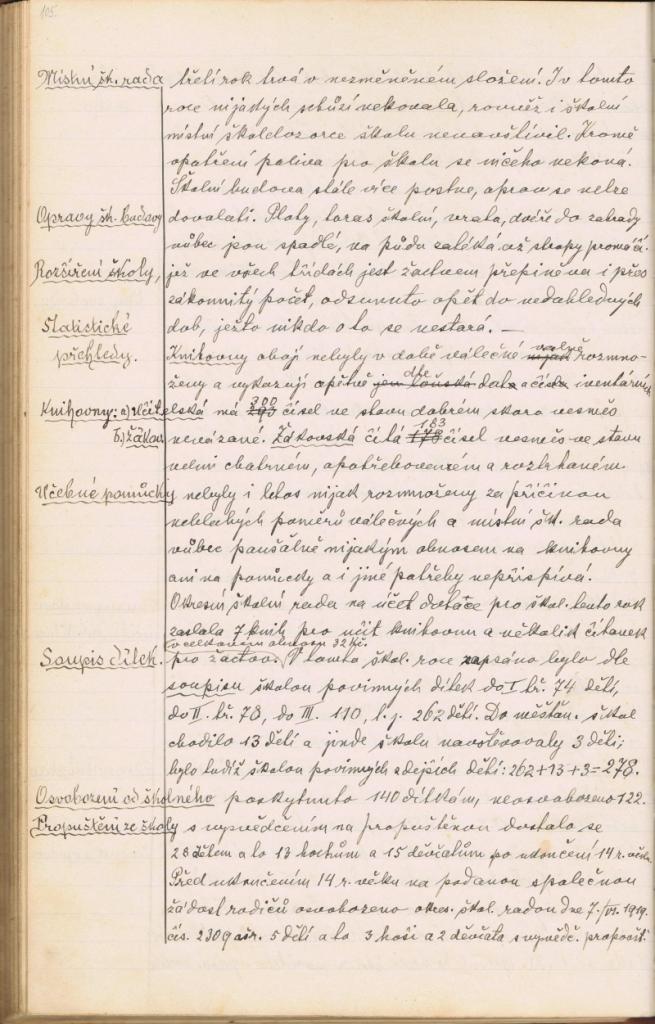 105.
Místní šk. rada třetí rok trvá v nezměněném složení. I v tomto
roce nijakých schůzí nekonala, rovněž i školní
místní školdozorce školu nenavštívil. Kromě
opatření paliva pro školu se ničeho nekoná.
Školní budova stále více pustne, oprav se nelze
Opravy šk. budovy dovolati. Ploty, taras školní, vrata, dvéře do zahrady
vůbec jsou spadlé, na půdu zatéká až stropy promáčí.
Rozšíření školy, jež ve všech třídách jest žactvem přeplněna i přes
zákonnitý počet, odsunuto opět do nedohledných
Statistické dob, ježto nikdo o to se nestará. —
přehledy. Knihovny obojí nebyly v době válečné nijak valně rozmno-
ženy a vykazují opětně jen loňská dle data a čísla inventárních
Knihovny: a) učitelská má 293 300 čísel ve stavu dobrém skoro vesměs
b.) žákov. nevázané. Žákovská čítá 178 183 čísel vesměs ve stavu
velmi chatrném, opotřebovaném a roztrhaném.
Učebné pomůcky nebyly i letos nijak rozmnoženy za příčinou
neblahých poměrů válečných a místní šk. rada
vůbec paušálně nijakým obnosem na knihovny
ani na pomůcky a i jiné potřeby nepřispívá.
Okresní školní rada na účet dotace pro škol. tento rok
zaslala 7 knih pro učit knihovnu a několik čítanek
v celkovém obnosu 32 Kč.
Soupis dítek. pro žactvo. V tomto škol. roce zapsáno bylo dle
soupisu školou povinných dítek do I. tř. 74 dětí,
do II. tř. 78, do III. 110, t. j. 262 dětí. Do měšťan. škol
chodilo 13 dětí a jinde školu navštěvovaly 3 děti;
bylo tudíž školou povinných zdejších dětí: 262+13+3=278.
Osvobození od školného poskytnuto 140 dítkám, neosvobozeno 122.
Propuštění ze školy s vysvědcením na propuštěnou dostalo se
28 dětem a to 13 hochům a 15 děvčatům po ukončení 14 r. věku.
Před ukončením 14 r. věku na podanou společnou
žádost rodičů osvobozeno okres. škol. radou dne 7./VI. 1919.
čís. 2309 5 dětí a to 3 hoši a 2 děvčata s vysvědč. propoušť.